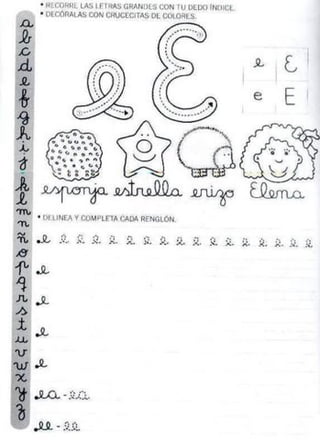 • RECORRE LAS LETRAS GRANDES CON TU DEDO ÍNDICE.
• DECÓRALAS CON CRUCECITAS DE COLORES.
e E
e E
e E
esponja estrella erizo Elena
• DELINEA Y COMPLETA CADA RENGLÓN.
e e e e e e e e e e e e e e e e e e
e
e
e
e
ea - ea
ee - ee
a
b
c
d
e
f
g
h
i
j
k
l
m
n
ñ
o
p
q
r
s
t
u
v
w
x
y
z